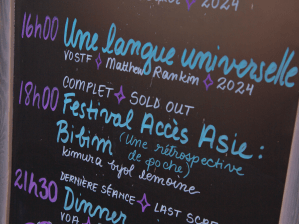 2024
16h00 Une langue universelle
VOSTF ✧ Matthew Rankin ✧ 2024
COMPLET ✧ SOLD OUT
18h00 Festival Accès Asie :
Bibim (Une rétrospective
de poche)
kimura byol lemoine
DERNIÈRE SÉANCE ✧ LAST SCRE
21h30 Dinner
VOA